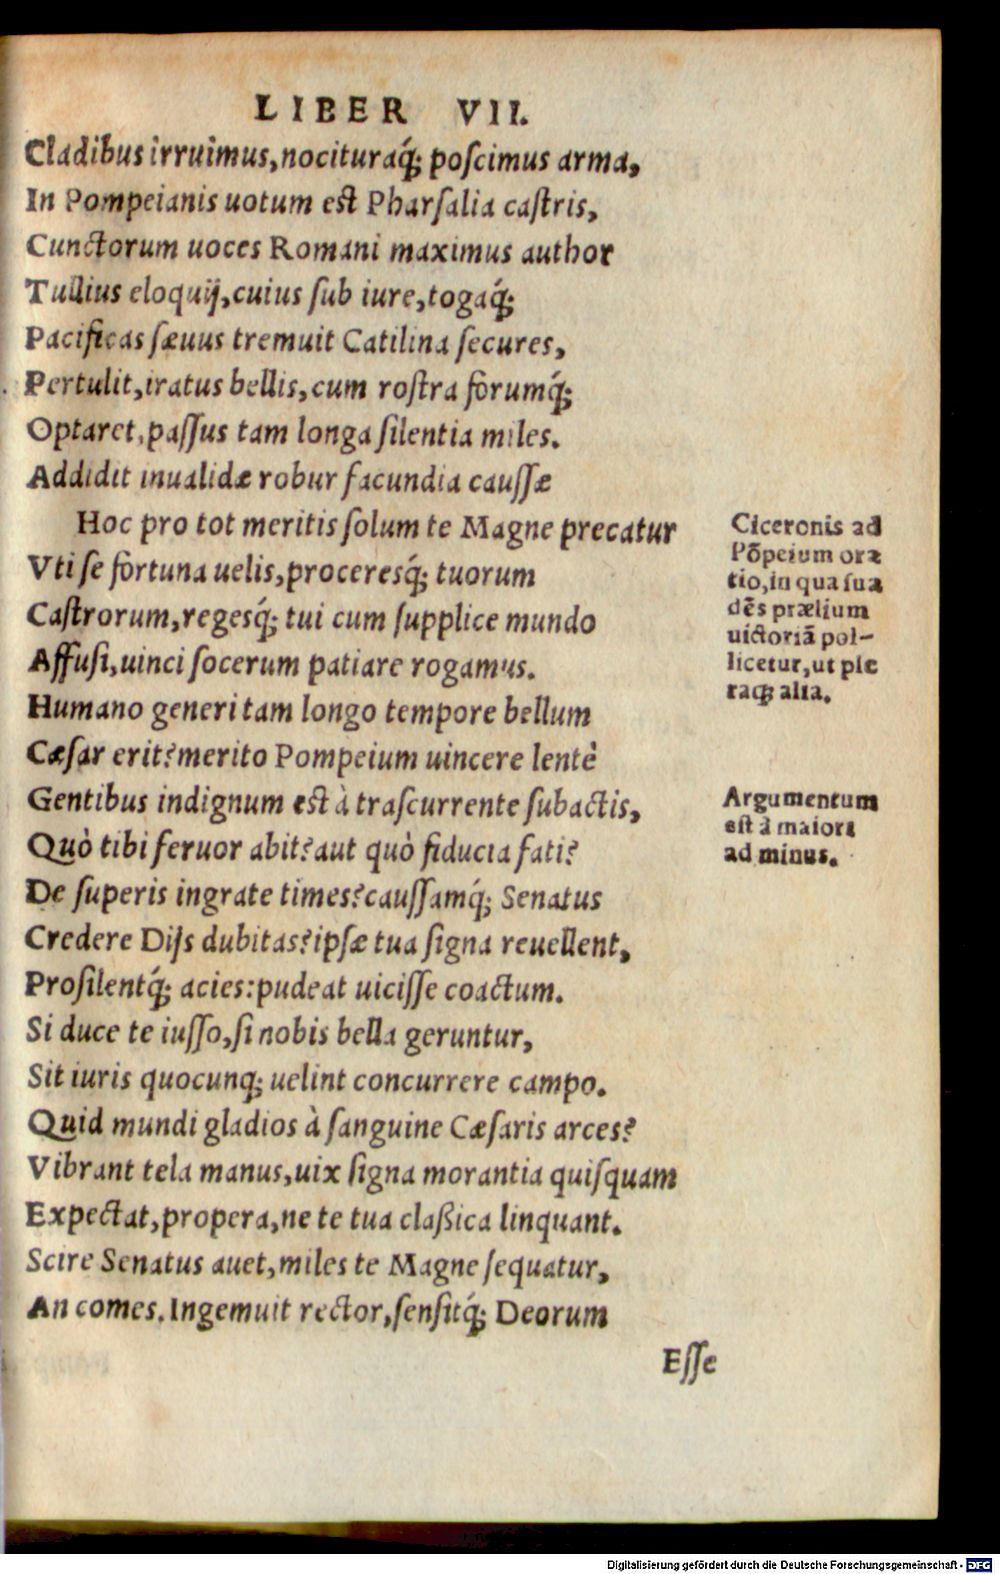 LIBER VII.
Cladibus irruimus, nocituraq́; poſcimus arma,
In Pompeianis uotum eſt Pharſalia caſtris,
Cunctorum uoces Romani maximus author
Tullius eloquij, cuius ſub iure, togaq́;
Pacificas ſæuus tremuit Catilina ſecures,
Pertulit, iratus bellis, cum roſtra forumq́;
Optaret, paſſus tam longa ſilentia miles.
Addidit inualidæ robur facundia cauſſæ
Hoc pro tot meritis ſolum te Magne precatur
Vti ſe fortuna uelis, proceresq́; tuorum
Caſtrorum, regesq́; tui cum ſupplice mundo
Affuſi, uinci ſocerum patiare rogamus.
Humano generi tam longo tempore bellum
Cæſar erit? merito Pompeium uincere lentè
Gentibus indignum eſt à traſcurrente ſubactis,
Quò tibi feruor abit? aut quò fiducia fati?
De ſuperis ingrate times? cauſſamq́; Senatus
Credere Dijs dubitas? ipſæ tua ſigna reuellent,
Proſilentq́; acies: pudeat uiciſſe coactum.
Si duce te iuſſo, ſi nobis bella geruntur,
Sit iuris quocunq; uelint concurrere campo.
Quid mundi gladios à ſanguine Cæſaris arces?
Vibrant tela manus, uix ſigna morantia quiſquam
Expectat, propera, ne te tua claßica linquant.
Scire Senatus auet, miles te Magne ſequatur,
An comes. Ingemuit rector, ſenſitq́; Deorum
Eſſe
Ciceronis ad
Põpeium ora
tio, in qua ſua
dẽs prælium
uictoriã pol-
licetur, ut ple
raq; alia.
Argumentum
eſt à maiori
ad minus.
Digitalisierung gefördert durch die Deutsche Forschungsgemeinschaft - DFG